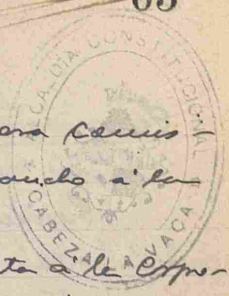 65
ALCALDÍA CONSTITUCIONAL
CABEZA LA VACA
ara comis-
ando á la
ta á la Corpo-